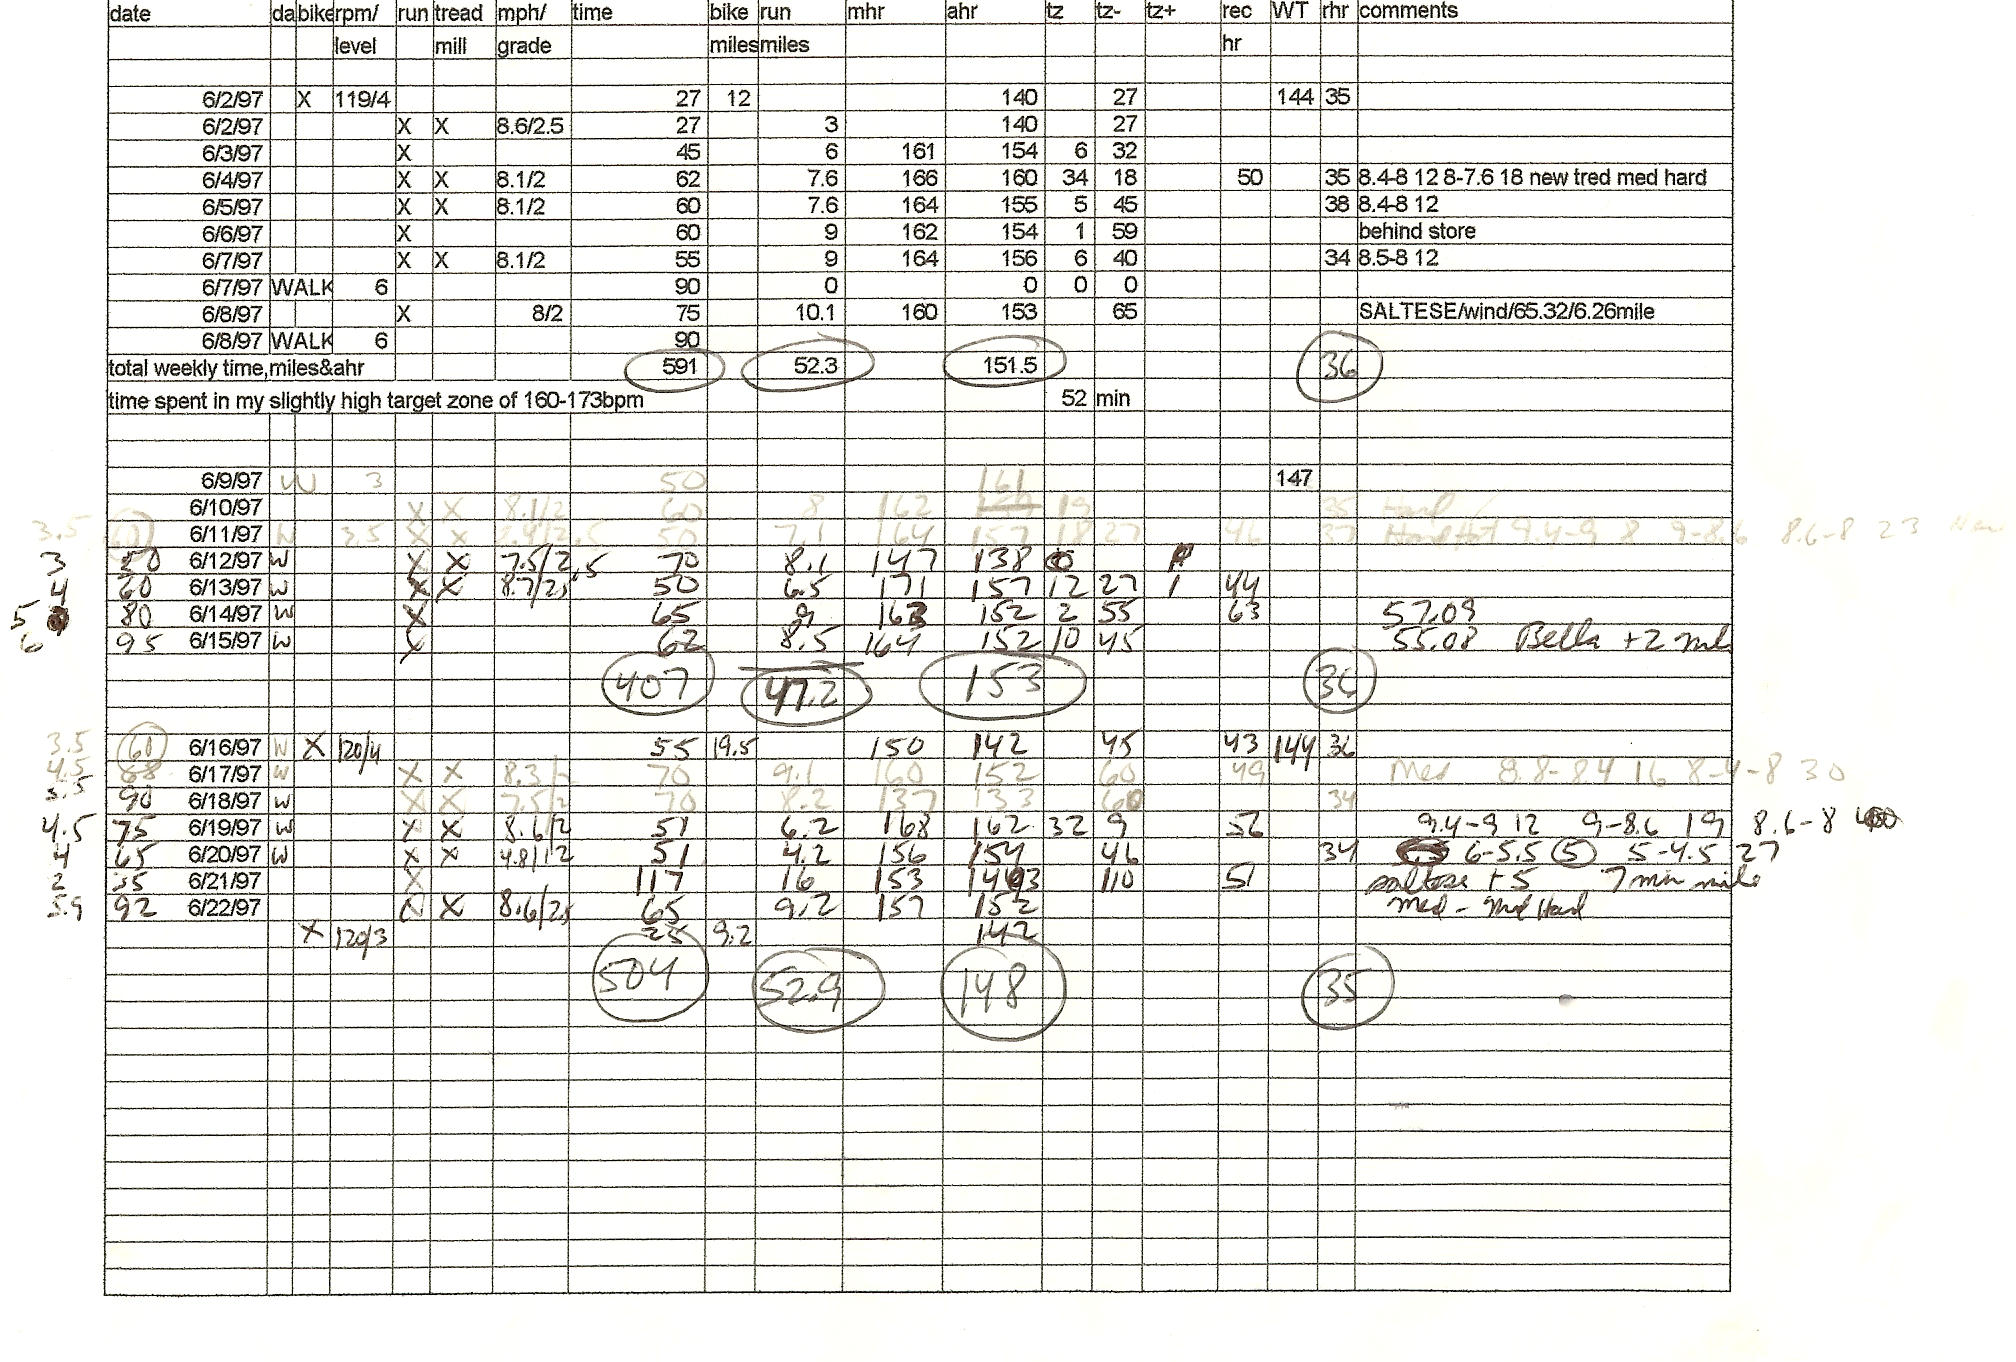 date da bike rpm/ run tread mph/ time bike run mhr ahr tz tz- tz+ rec WT rhr comments
level mill grade miles miles hr
6/2/97 X 119/4 27 12 140 27 144 35
6/2/97 X X 8.6/2.5 27 3 140 27
6/3/97 X 45 6 161 154 6 32
6/4/97 X X 8.1/2 62 7.6 166 160 34 18 50 35 8.4-8 12 8-7.6 18 new tred med hard
6/5/97 X X 8.1/2 60 7.6 164 155 5 45 38 8.4-8 12
6/6/97 X 60 9 162 154 1 59 behind store
6/7/97 X X 8.1/2 55 9 164 156 6 40 34 8.5-8 12
6/7/97 WALK 6 90 0 0 0 0
6/8/97 X 8/2 75 10.1 160 153 65 SALTESE/wind/65.32/6.26mile
6/8/97 WALK 6 90
total weekly time,miles&ahr 591 52.3 151.5 36
time spent in my slightly high target zone of 160-173bpm 52 min
6/9/97 W 3 50 161 147
6/10/97 X X 8.1/2 60 8 162 19 35
3.5 6/11/97 W 3.5 X X 50 7.1 164 157 18 27 46 37 9.4-9 8 9-8.6 8.6-8 23
3 50 6/12/97 W X X 7.5/2.5 70 8.1 147 138 0
4 60 6/13/97 W X X 8.7/2.5 50 6.5 171 157 12 27 1 44
5 80 6/14/97 W X 65 9 163 152 2 55 63 57.09
6 95 6/15/97 W X 62 8.5 164 152 10 45 55.08 Bella +2 mile
407 47.2 153 36
3.5 6/16/97 W X 120/4 55 19.5 150 142 45 43 144 36
4.5 68 6/17/97 W X X 8.3/2 70 9.1 160 152 60 49 Med 8.8-84 16 8-4-8 30
5.5 90 6/18/97 W X X 7.5/2 70 8.2 137 133 60 34
4.5 75 6/19/97 W X X 8.6/2 51 6.2 168 162 32 9 52 9.4-9 12 9-8.6 19 8.6-8
4 65 6/20/97 W X X 4.8/12 51 4.2 156 154 46 34 6-5.5 5 5-4.5 27
2 35 6/21/97 X 117 16 153 110 51 saltese +5 7 min mile
5.9 92 6/22/97 X X 8.6/2.5 65 9.2 157 152 med - Med Hard
X 120/3 25 9.2 142
504 52.9 148 35